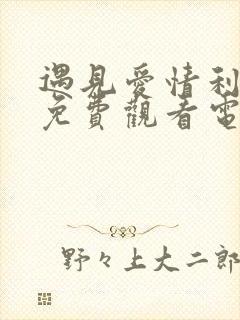 遇見愛情利
免費觀看電
野々上大二郎